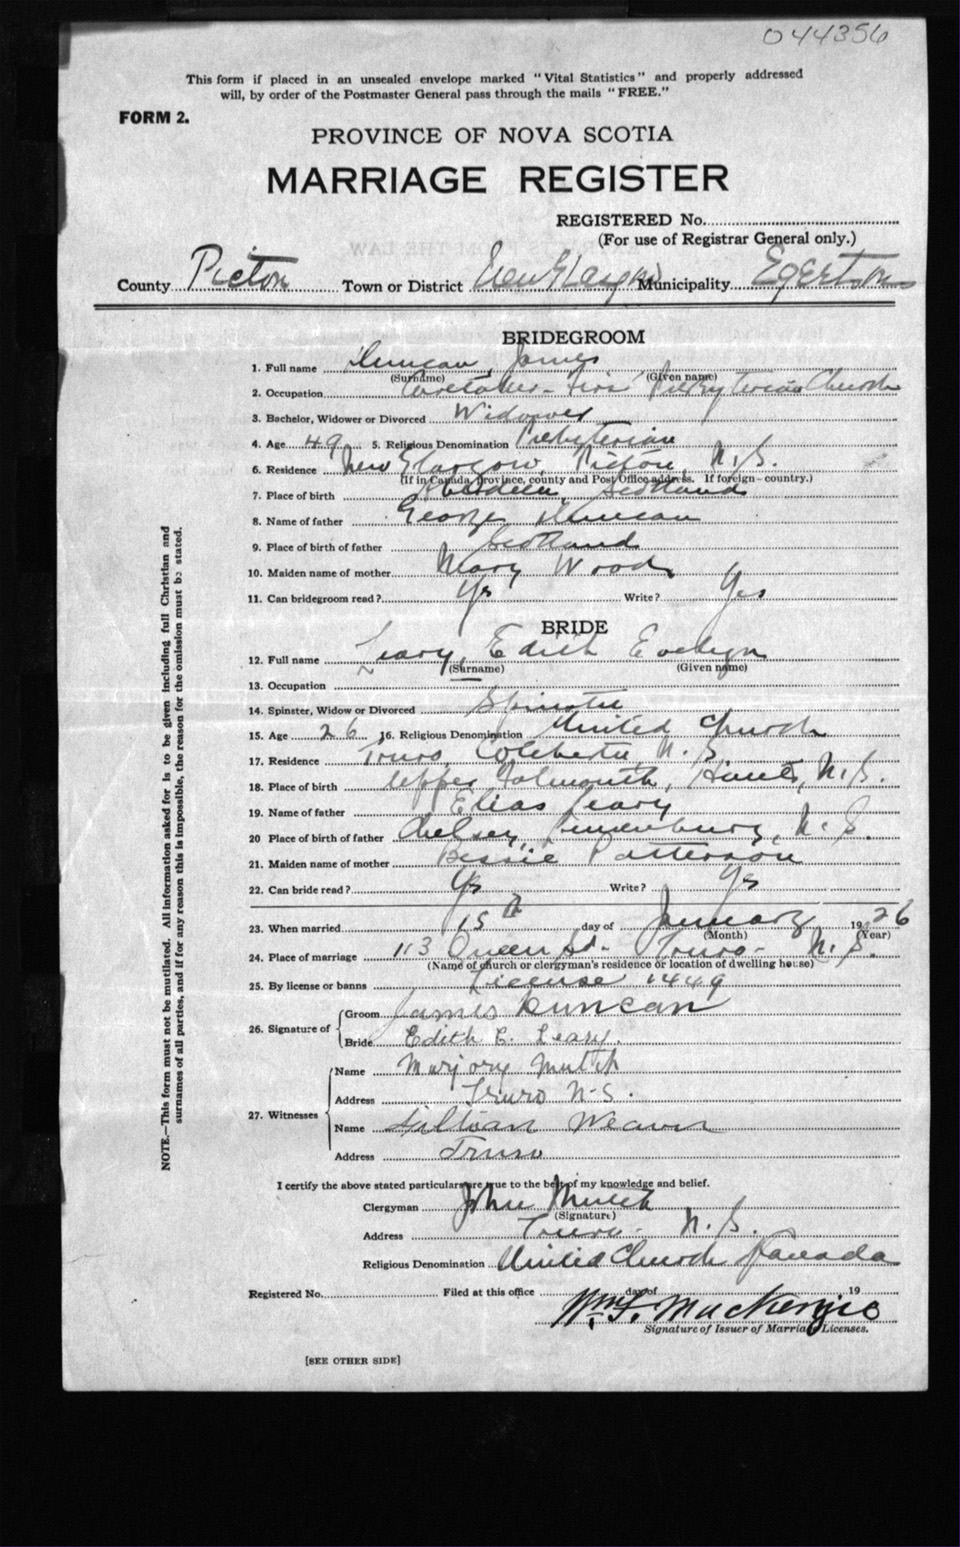 044356
This form if placed in an unsealed envelope marked "Vital Statistics" and properly addressed
will, by order of the Postmaster General pass through the mails "FREE."
FORM 2.
PROVINCE OF NOVA SCOTIA
MARRIAGE REGISTER
REGISTERED No.
(For use of Registrar General only.)
County Pictou Town or District New Glasgow Municipality Egerton
BRIDEGROOM
1. Full name Duncan, James
(Surname) (Given name)
2. Occupation Caretaker - First Presbyterian Church
3. Bachelor, Widower or Divorced Widower
4. Age 49 5. Religious Denomination Presbyterian
6. Residence New Glasgow, Pictou, N.S.
(If in Canada, province, county and Post Office address. If foreign-country.)
7. Place of birth Aberdeen, Scotland
8. Name of father George Duncan
9. Place of birth of father Scotland
10. Maiden name of mother Mary Wood
11. Can bridegroom read? Yes Write? Yes
BRIDE
12. Full name Leary, Edith Evelyn
(Surname) (Given name)
13. Occupation
14. Spinster, Widow or Divorced Spinster
15. Age 26 16. Religious Denomination United Church
17. Residence Truro, Colchester, N.S.
18. Place of birth Upper Falmouth, Hants, N.S.
19. Name of father Elias Leary
20 Place of birth of father Chelsea, Lunenburg, N.S.
21. Maiden name of mother Bessie Patterson
22. Can bride read? Yes Write? Yes
23. When married 15th day of January 1926
(Month) (Year)
24. Place of marriage 113 Queen St. Truro - N.S.
(Name of church or clergyman's residence or location of dwelling house)
25. By license or banns License 1449
26. Signature of Groom James Duncan
Bride Edith E. Leary.
27. Witnesses Name Marjory Mutch
Address Truro N-S.
Name Lillian Weaver
Address Truro
I certify the above stated particulars are true to the best of my knowledge and belief.
Clergyman John Mutch
(Signature)
Address Truro - N.S.
Religious Denomination United Church Canada
Registered No. Filed at this office day of 19
Wm F. MacKenzie
Signature of Issuer of Marriage Licenses.
[SEE OTHER SIDE]
NOTE.—This form must not be mutilated. All information asked for is to be given including full Christian and
surnames of all parties, and if for any reason this is impossible, the reason for the omission must be stated.